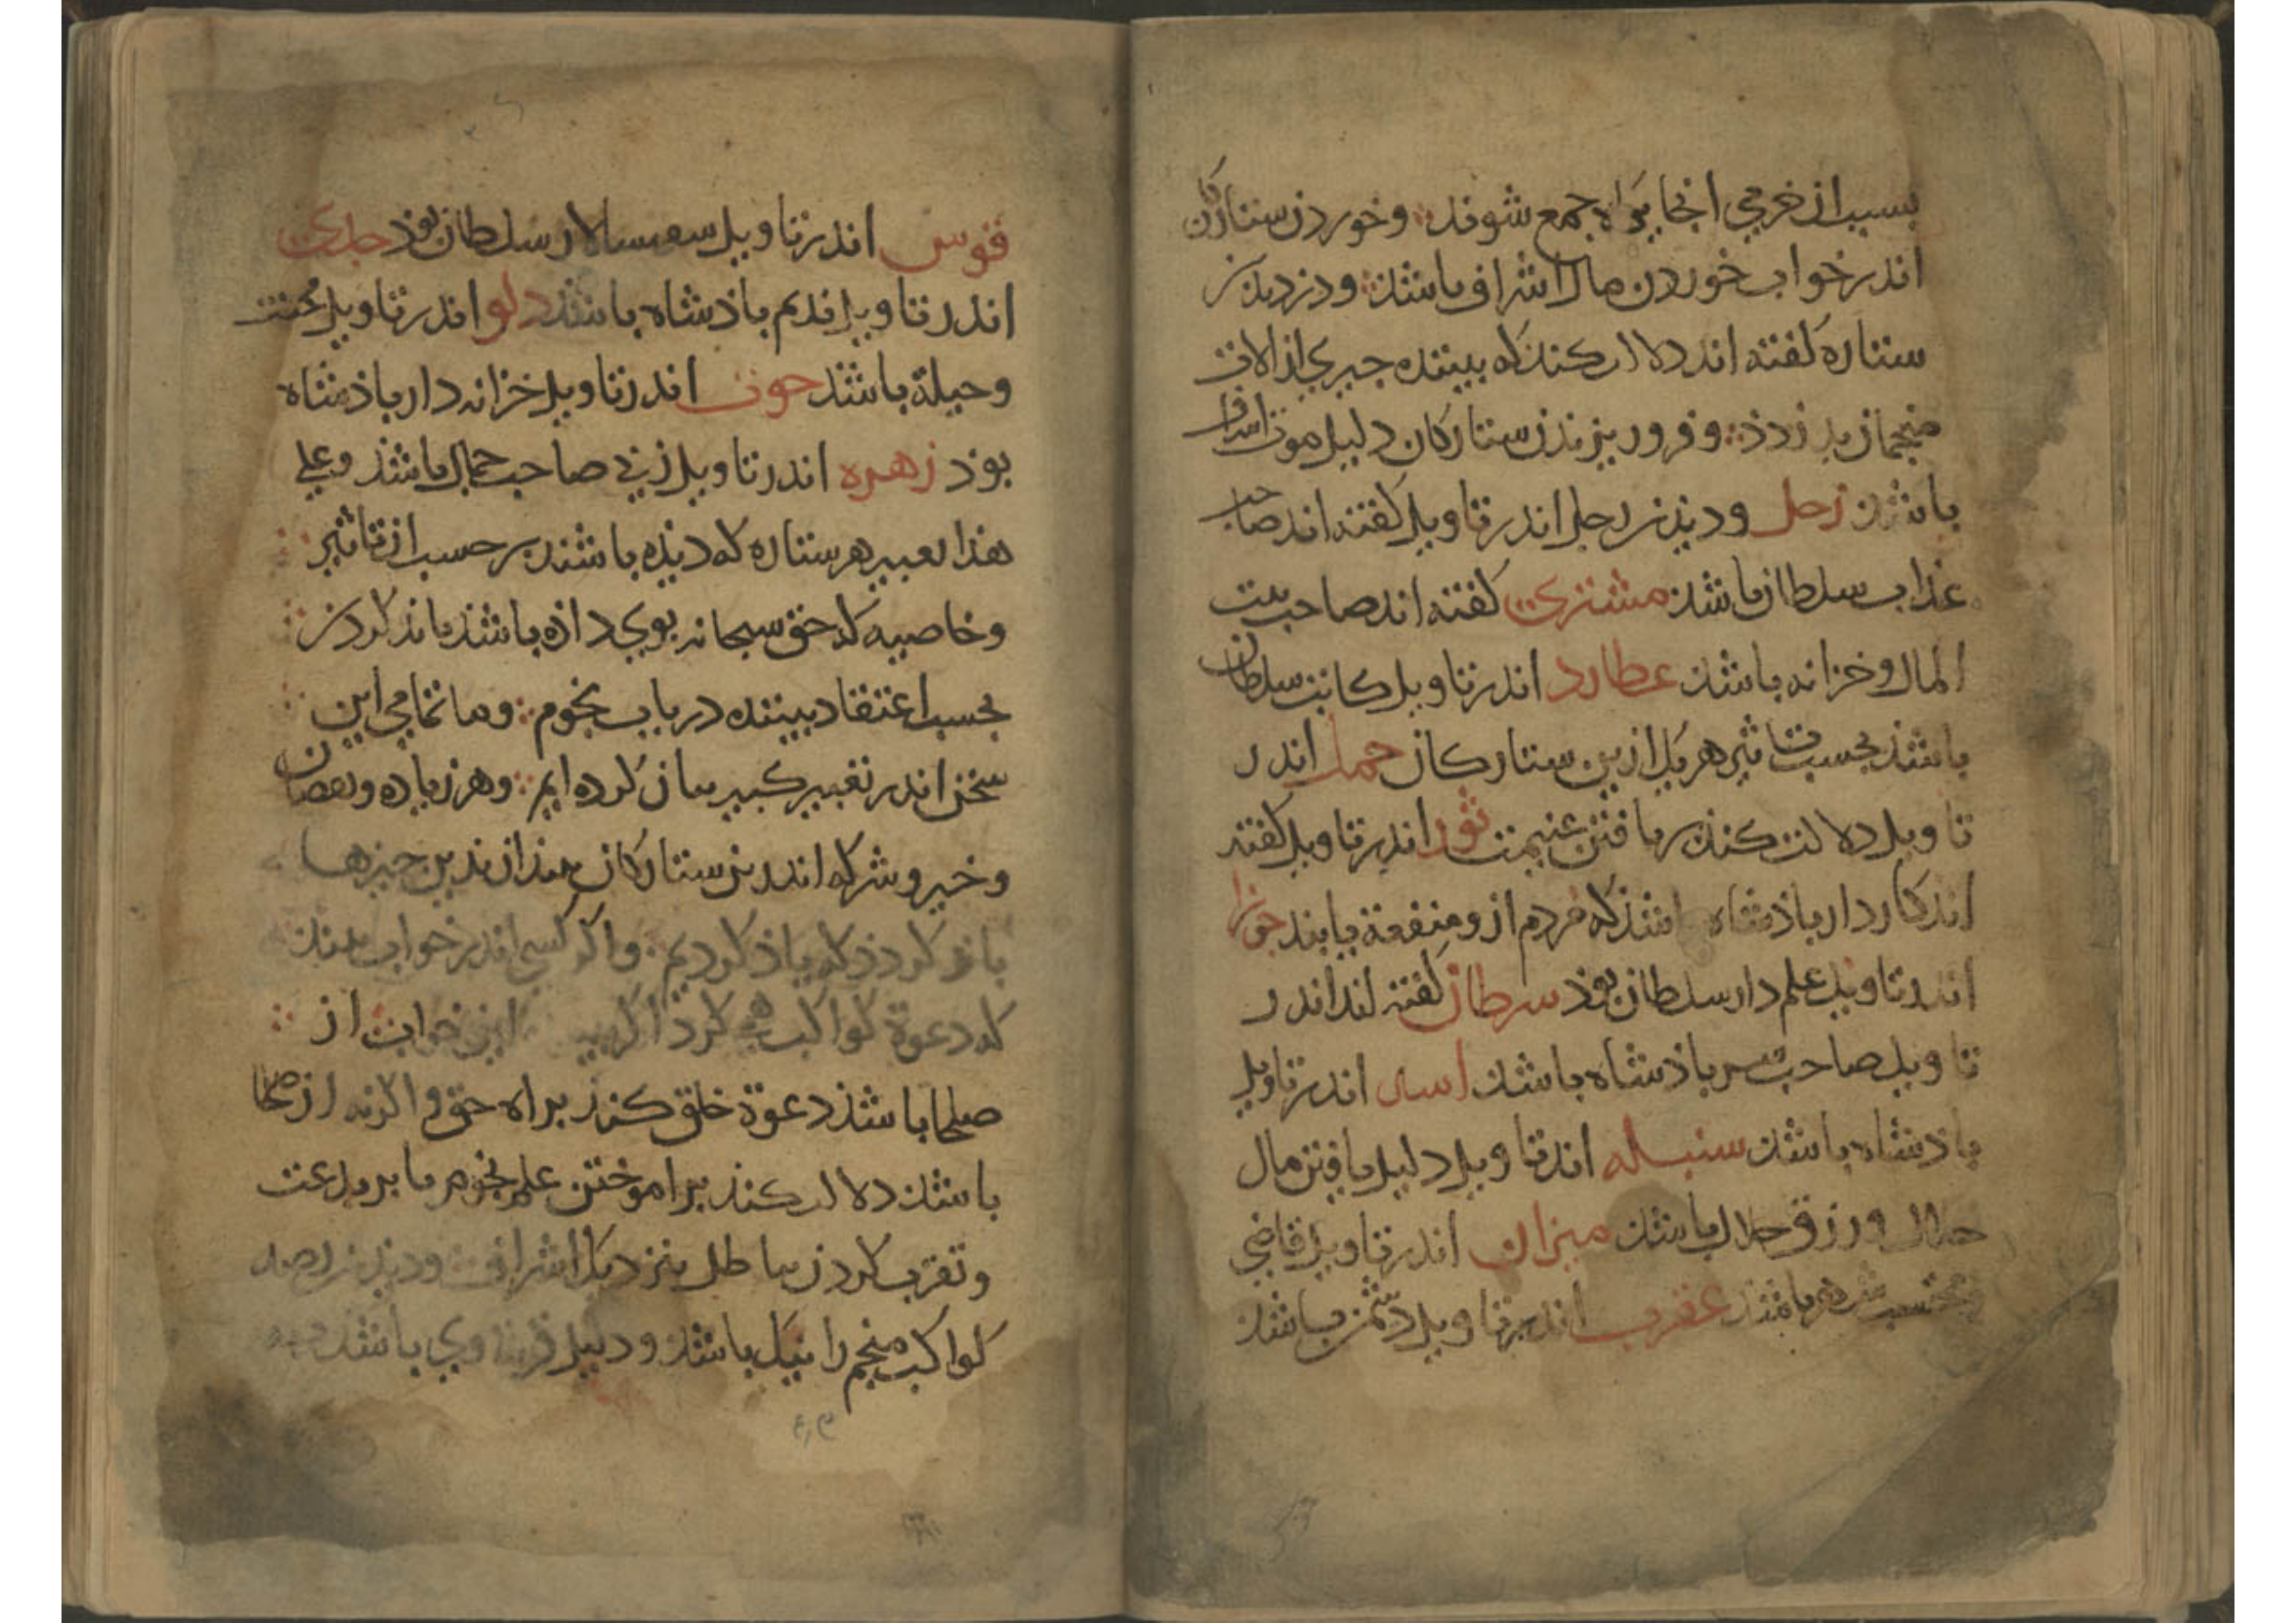 بسبب از غرمي انجايكاه جمع شوند وخوردن ستاركان
اندر خواب خوردن مال اشراف باشذ ودزديدن
ستاره كفته اند دلالت كند كه بيننده جيزي از الات
منجمان بدزدذ وفرو ريزيدن ستاركان دليل موت اشراف
باشذ زحل وديدن زحل اندر تاويل كفته اند صاحب
عذاب سلطان باشذ مشتري كفته اند صاحب بيت
المال وخزانه باشذ عطارد اندر تاويل كاتب سلطان
باشذ بحسب تاثير هر يك ازين ستاركان حمل اندر
تاويل دلالت كند بر يافتن غنيمت ثور اندر تاويل كفته
اند كاردار باذشاه باشذ كه مردم ازو منفعة يابند جوزا
اندر تاويل علم دار سلطان بوذ سرطان كفته اند اندر
تاويل صاحب سر باذشاه باشذ اسد اندر تاويل
باذشاه باشذ سنبله اندر تاويل دليل يافتن مال
حلال ورزق حلال باشذ ميزان اندر تاويل قاضي
محتسب شهر باشذ عقرب اندر تاويل دشمن باشذ
قوس اندر تاويل سپهسالار سلطان بوذ جدي
اندر تاويل نديم باذشاه باشذ دلو اندر تاويل محنت
وحيلة باشذ حوت اندر تاويل خزانه دار باذشاه
بوذ زهره اندر تاويل زني صاحب جمال باشذ وعلي
هذا تعبير هر ستاره كه ديذه باشند بر حسب از تاثير
وخاصيه كه حق سبحانه بوي داذه باشذ ياذ كردن
بحسب اعتقاد بيننده در باب نجوم وما تمامي اين
سخن اندر تعبير كبير بيان كرده ايم وهر زياده ونقصان
وخير وشر كه اندرين ستاركان بيند از بدين جيزها
باز كردذ كه ياذ كرديم واكر كسي اندر خواب بيند
كه دعوة كواكب همي كرد اكر اين خواب از
صلحا باشذ دعوة خلق كند براه حق واكر نه از صلحا
باشذ دلالت كند بر اموختن علم نجوم يا بر بدعت
وتقرب كردن بباطل بنزديك اشراف وديدن رصد
كواكب منجم را نيك باشذ ودليل وي باشذ